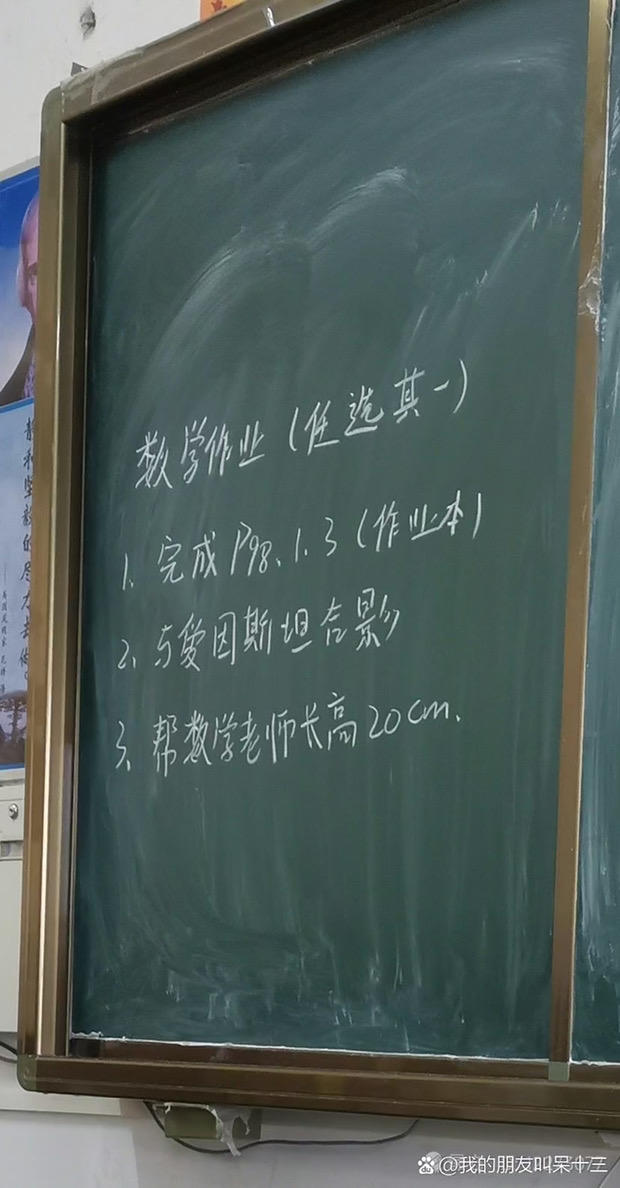 数学作业（任选其一）
1、完成P98、1.3（作业本）
2、与爱因斯坦合影
3、帮数学老师长高20cm.
和坚毅的尽力去做
@我的朋友叫呆十三